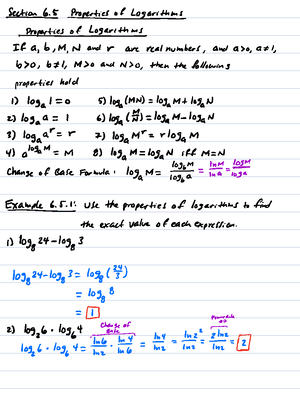 Section 6.5 Properties of Logarithms
Properties of Logarithms
If a, b, M, N and r are real numbers, and a>0, a≠1,
b>0, b≠1, M>0 and N>0, then the following
properties hold
1) logₐ1 = 0 5) logₐ(MN) = logₐM + logₐN
2) logₐa = 1 6) logₐ(M/N) = logₐM - logₐN
3) logₐaʳ = r 7) logₐMʳ = r logₐM
4) a^(logₐM) = M 8) logₐM = logₐN iff M = N
Change of Base Formula: logₐM = log_b M / log_b a = ln M / ln a = log M / log a
Example 6.5.1: Use the properties of logarithms to find
the exact value of each expression.
1) log₈24 - log₈3
log₈24 - log₈3 = log₈(24/3)
= log₈8
= 1
2) log₂6 · log₆4
Change of Base
log₂6 · log₆4 = ln6/ln2 · ln4/ln6 = ln4/ln2 = ln2²/ln2 = 2ln2/ln2 = 2